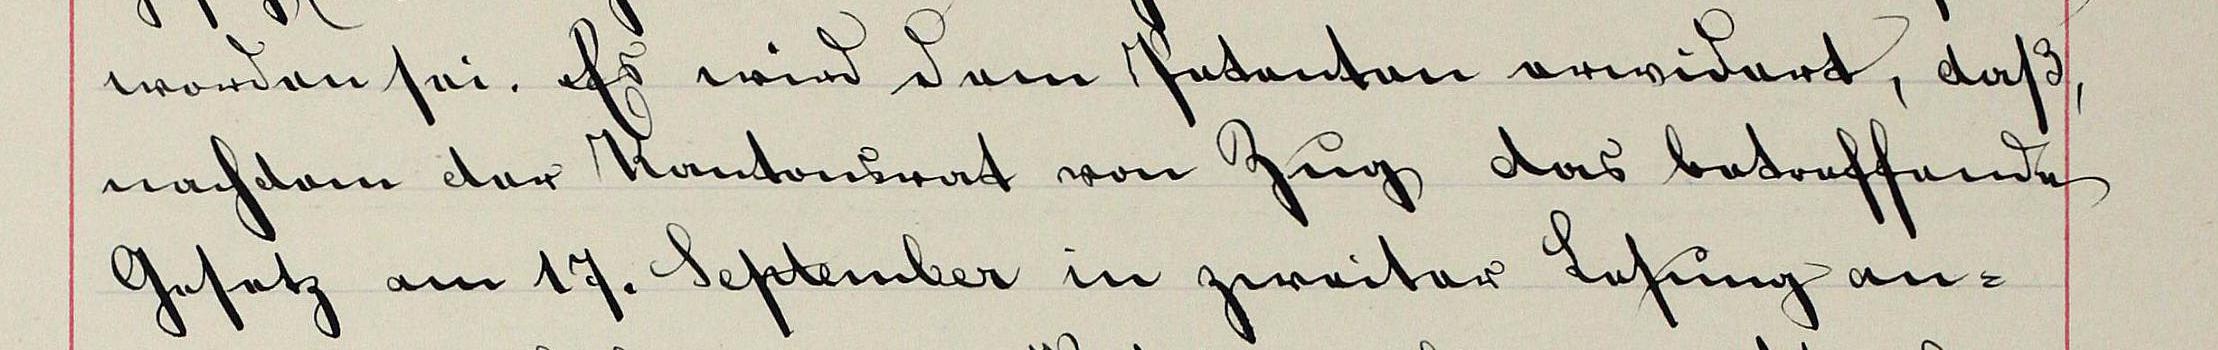 worden sei. Es wird dem Petenten erwidert, daß,
nachdem der Kantonsrat von Zug das betreffende
Gesetz am 17. September in zweiter Lesung an=